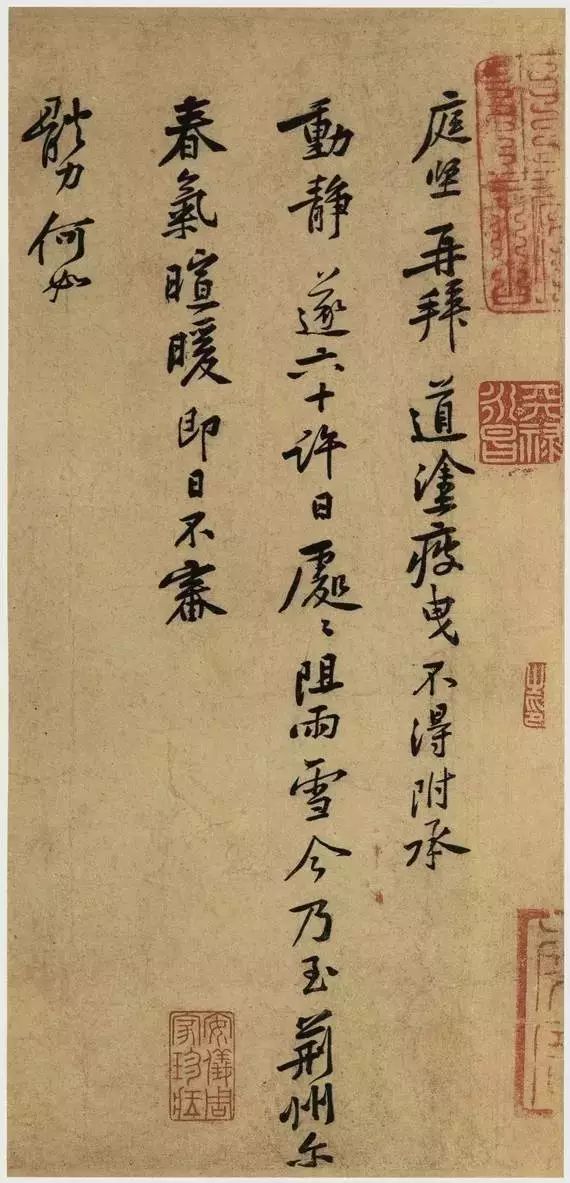 庭坚再拜道塗疲曳不得附承
動靜遂六十許日處〻阻雨雪今乃至荆州尔
春氣暄暖即日不審
體力何如
安儀周
家珍藏